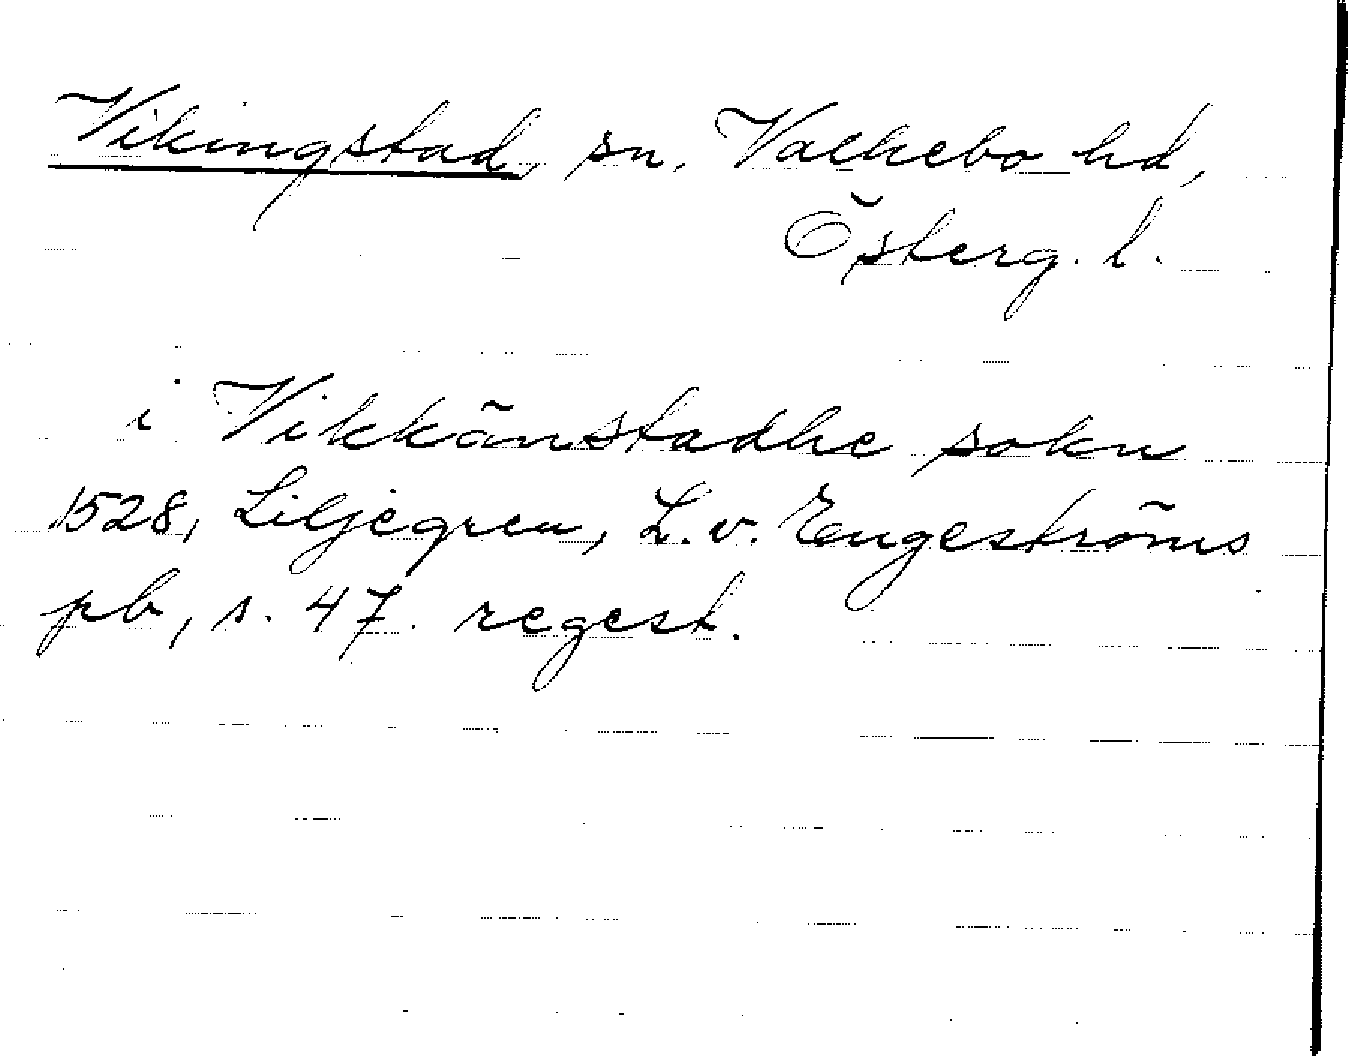 Vikingstad, sn, Valkebo hd,
Österg. l.
i Vikkänstadhe sokn
1528, Liljegren, L. v. Engeströms
pb, s. 47. regest.